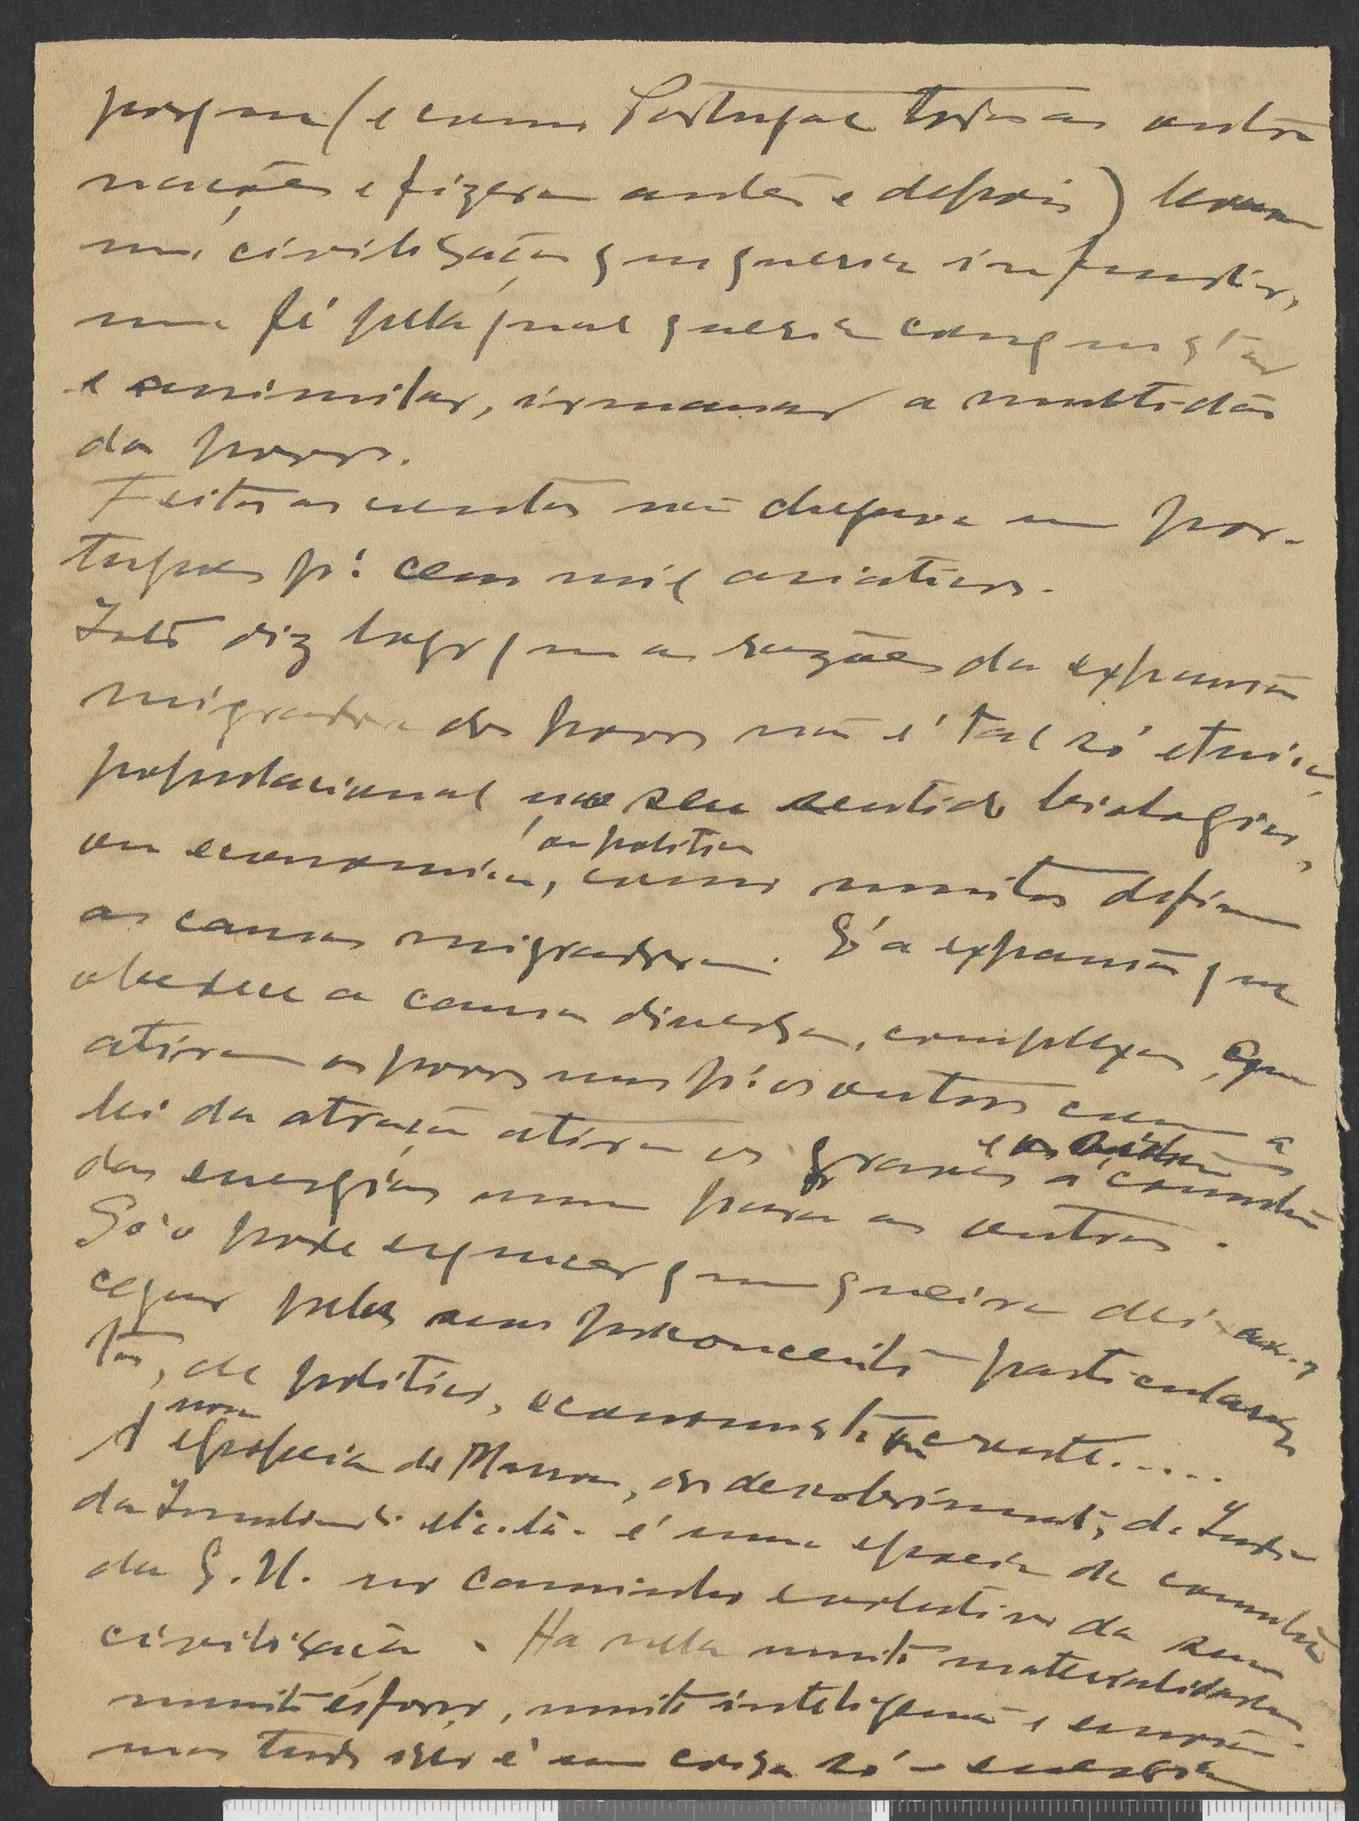 porque (e como Portugal todas as outras
nações e fizeram antes e depois) levava
uma civilisação que queria infundir,
uma fé pela qual queria conquistar
e assimilar, irmanar a multidão
dos povos.
Feitas as contas não chegava um por-
tugues pª cem mil asiaticos.
Isto diz logo que as razões da expansão
migradora dos povos não é tal só etnica,
populacional no seu sentido biologico,
ou economica, ou politica
como muitos definem
as causas migradoras. É a expansão que
obedece a causas diversas, complexas, que
atiram os povos uns pª os outros como a
lei da atração atira os graves e os astros à comunhão
das energias uns para os outros.
Só o pode esquecer quem queira deixar-se
cegar pelos seus preconceitos particularis-
tas, de politico, economista crente.....
A epopeia de Marrocos, dos descobrimentos, da India
da Inconfidencia etc. etc. é uma epopeia da comunhão
da G. H. no caminho evolutivo da sua
civilisação. Ha nella muita materialidade
muito esforço, muita inteligencia e coração
mas tudo isso é uma coisa só - energia